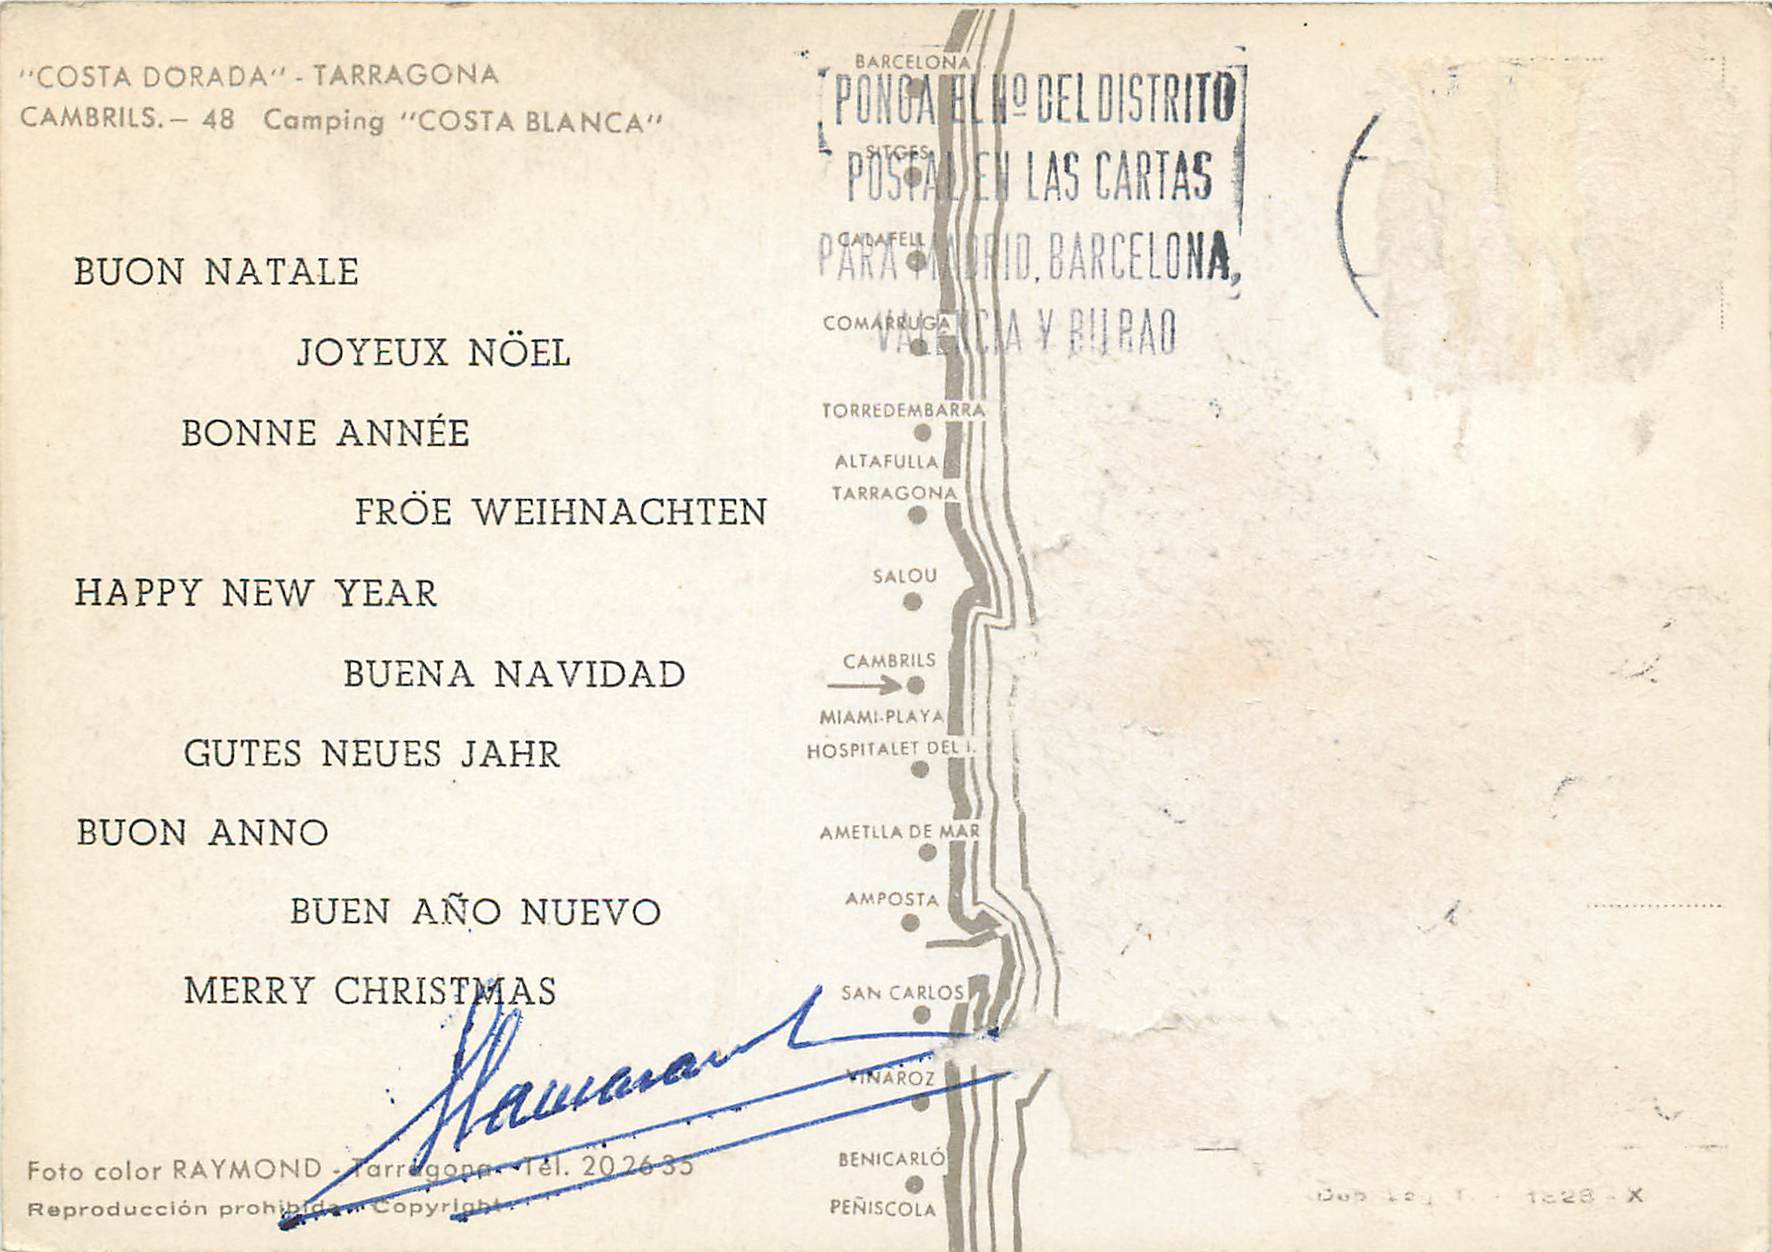 "COSTA DORADA" - TARRAGONA
CAMBRILS.- 48 Camping "COSTA BLANCA"
BUON NATALE
JOYEUX NÖEL
BONNE ANNÉE
FRÖE WEIHNACHTEN
HAPPY NEW YEAR
BUENA NAVIDAD
GUTES NEUES JAHR
BUON ANNO
BUEN AÑO NUEVO
MERRY CHRISTMAS
Foto color RAYMOND - Tarragona - Tel. 20 26 35
Reproducción prohibida - Copyright
BARCELONA
SITGES
CALAFELL
COMARRUGA
TORREDEMBARRA
ALTAFULLA
TARRAGONA
SALOU
CAMBRILS
MIAMI-PLAYA
HOSPITALET DEL I.
AMETLLA DE MAR
AMPOSTA
SAN CARLOS
VINAROZ
BENICARLÓ
PEÑISCOLA
PONGA EL Nº DEL DISTRITO
POSTAL EN LAS CARTAS
PARA MADRID, BARCELONA,
VALENCIA Y BILBAO
X